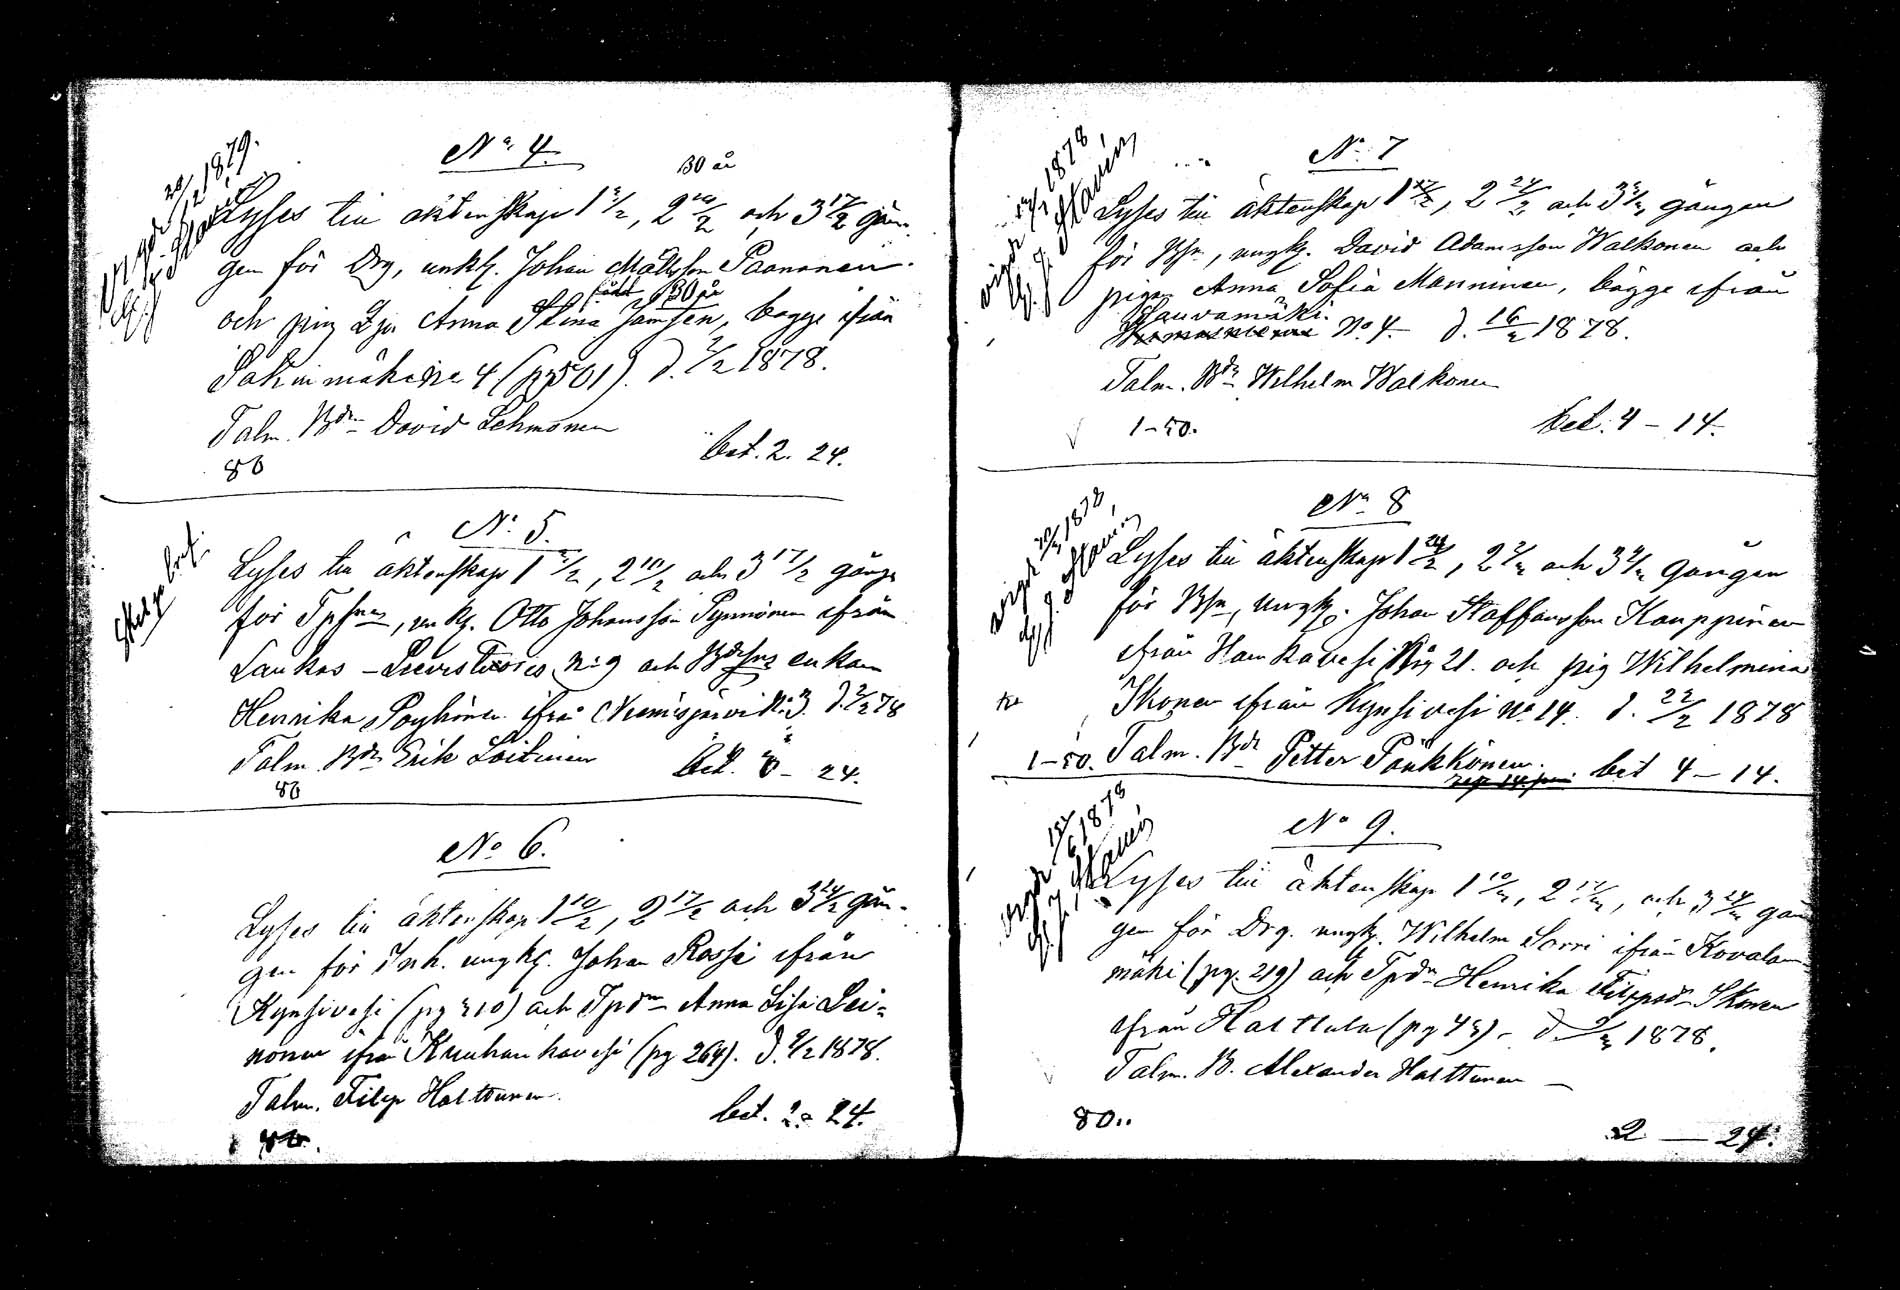 No 4.
30 år
Lyses till äktenskap 1 3/2, 2 10/2 och 3 17/2 gån-
gen för Drg, unkg. Johan Paananen
och pig Anna Stina Jamsen, bägge ifrån
4 (pg 501). d. 2/2 1878.
Talm. Bdn David Lehmonen
80
bet. 2. 24.
No 5.
Lyses till äktenskap 1 3/2, 2 10/2 och 3 17/2 gånge
för unkg. Otto Johansson Pynnönen ifrån
Laukas No 9 och enkan
Henrika Pöyhönen ifrå Niemisjärvi No 3. d. 2/2 78
Talm. Bdn Erik Loitinen
bet. 24.
80
No 6.
Lyses till äktenskap 1 10/2, 2 17/2 och 3 24/2 gån-
gen för Inh. ungkg. Johan Rossi ifrån
Kynsivesi (pg 210) och Tpdn Anna Lisa Lei-
nonen ifrån Kuuhankavesi (pg 264). d. 9/2 1878.
Talm. Filip Halttunen.
bet. 2. 24.
80.
vigde 1878
No 7
Lyses till äktenskap 1 17/2, 2 24/2 och 3 3/3 gången
för Bsn, ungkg. David Adamsson Walkonen och
pigan Anna Sofia Manninen, bägge ifrån
Hauvamäki.
No 4. d. 16/2 1878.
Talm. Bdn Wilhelm Walkonen
1-50.
bet. 4 - 14.
vigde 1878
No 8
Lyses till äktenskap 1 24/2, 2 3/3 och 3 gången
för Bsn, ungkg. Johan Staffansson Kauppinen
ifrån Hankavesi No 21. och pig Wilhelmina
Ikonen ifrån Kynsivesi No 14. d. 22/2 1878
1-50. Talm. Bdn Petter Pänkkönen. bet 4 - 14.
vigde 1878
No 9.
Lyses till äktenskap 1 10/3, 2 17/3, och 3 24/3 gån
gen för Drg. ungkg. Wilhelm Sorri ifrån Kovalan-
mäki (pg. 219) och Tpdn Henrika Filipsdr Ikonen
ifrån Halttula (pg 43). d. 9/3 1878.
Talm. B. Alexander Halttunen
80..
2 - 24.